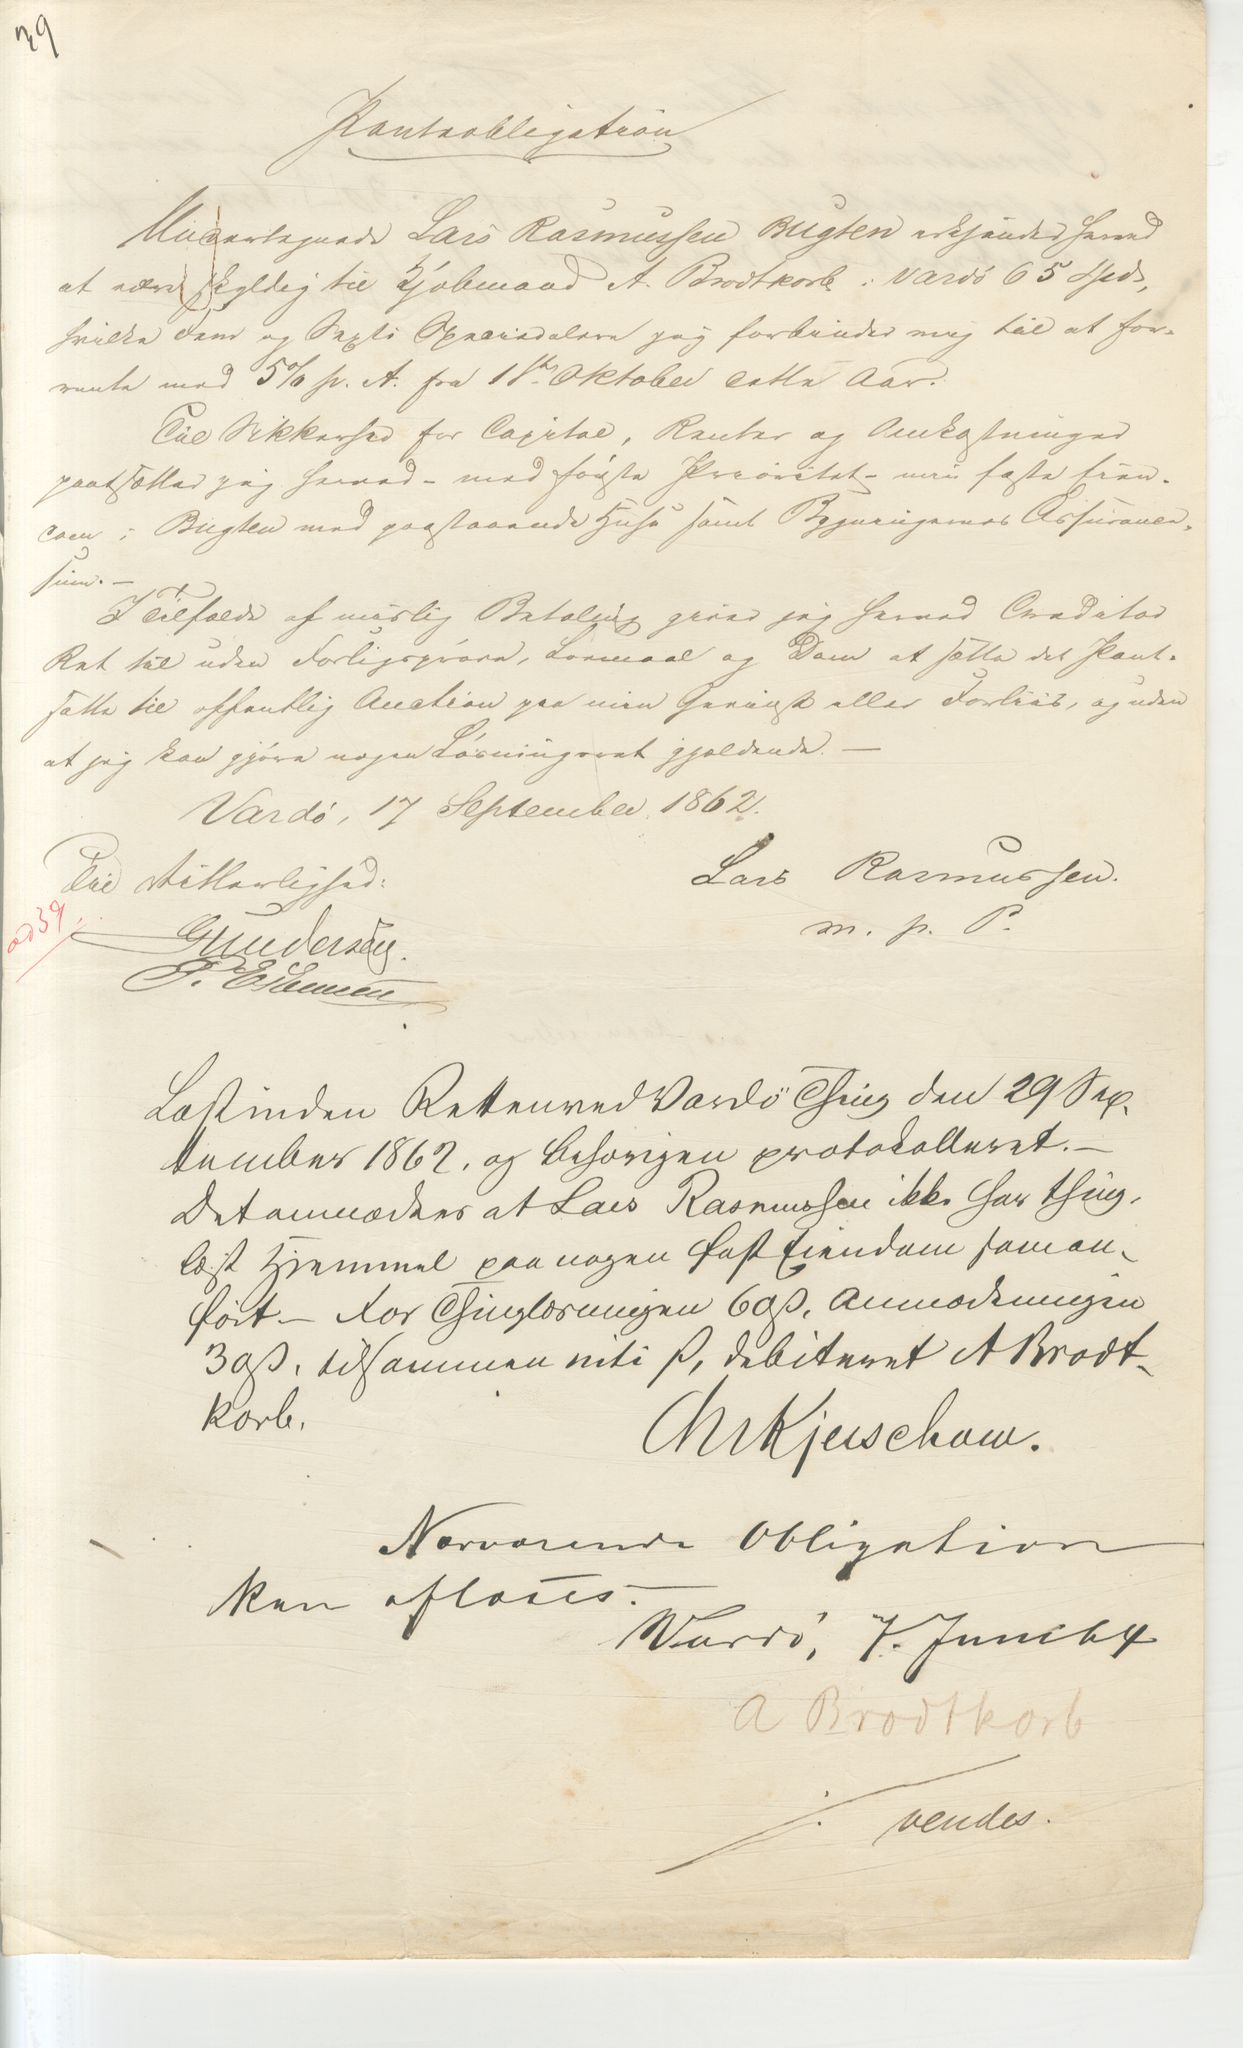 39
Panteobligation
Undertegnede Lars Rasmussen Bugten erkjender herved
at være skyldig til Kjøbmand A. Brodtkorb i Vardö 65 Spd,
hvilke Fem og Sexti Speciedalere jeg forbinder mig til at for-
rente med 5% p. A. fra 1ste Oktober dette Aar.
Til Sikkerhed for Capital, Renter og Omkostninger
pantsætter jeg herved - med første Prioritet - min faste Eien-
dom i Bugten med paastaaende Huse samt Bygningernes Assurance-
sum. -
I Tilfælde af mislig Betaling giver jeg herved Creditor
Ret til uden Forligsprøve, Lovmaal og Dom at sætte det Pant-
satte til offentlig Auction paa min Gevinst eller Forliis, og uden
at jeg kan gjøre nogen Løsningsret gjeldende. -
Vardö, 17 September 1862.
Til Vitterlighed:
Lars Rasmussen.
m. p. P.
ad 39.
Gundersen.
P. Esbensen
Læst inden Retten ved Vardö Thing den 29 Sep-
tember 1862, og behørigen protokolleret. -
Det anmærkes at Lars Rasmussen ikke har thing-
læst Hjemmel paa nogen fast Eiendom som an-
ført. - For Thinglæsningen 60ß, Anmærkningen
30ß, tilsammen niti ß, debiteret A Brodt-
korb.
Chr Kjerschow.
Nærværende Obligation
kan aflæses. -
Vardö, 7. Juni 64
A Brodtkorb
vendes.